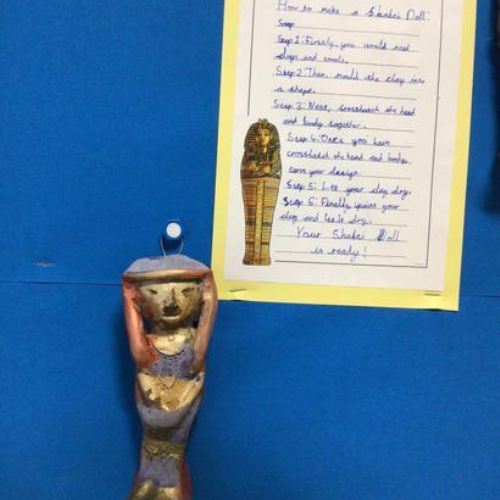 How to make a Shabti Doll:
Step
Step 1: Firstly, you would need
clay and tools.
Step 2: Then mould the clay into
a shape.
Step 3: Next, crosshatch the head
and body together.
Step 4: Once you have
crosshatch the head and body,
carve your design.
Step 5: Let your clay dry.
Step 6: Finally, paint your
clay and let it dry.
Your Shabti Doll
is ready!